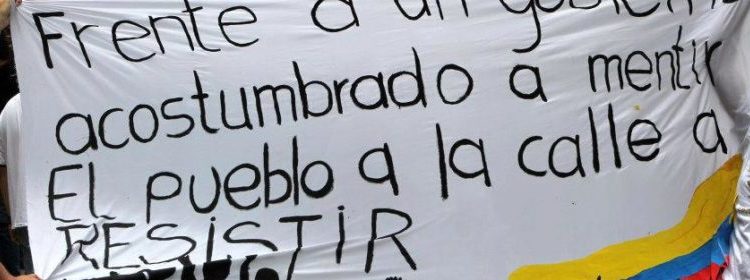 Frente a un gobierno
acostumbrado a mentir
El pueblo a la calle a
RESISTIR